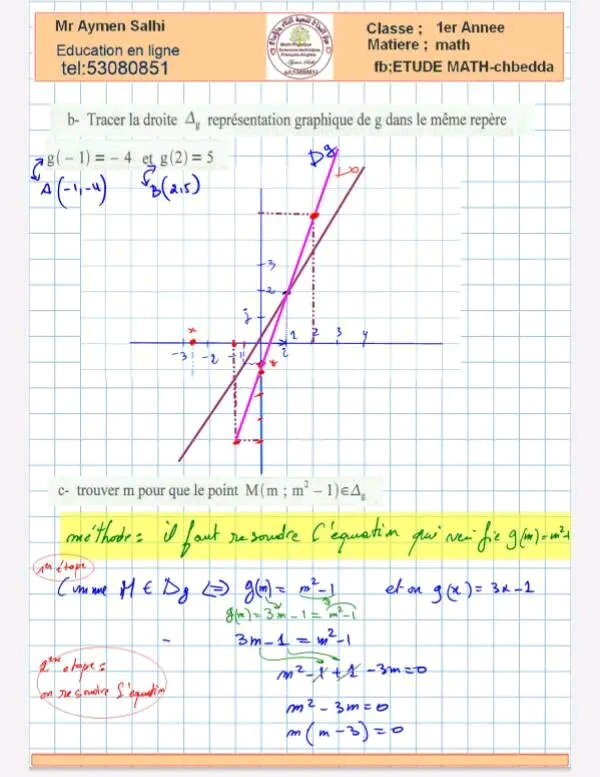 Mr Aymen Salhi
Education en ligne
tel:53080851
Classe ; 1er Annee
Matiere ; math
fb;ETUDE MATH-chbedda
b- Tracer la droite Δg représentation graphique de g dans le même repère
g(-1) = -4 et g(2) = 5
A(-1,-4) B(2,5)
Dg
3
2
j
-3 -2 -1 i 1 2 3 4
c- trouver m pour que le point M(m ; m² - 1)∈Δg
méthode : il faut resoudre l'équation qui verifie g(m)=m²-1
1er étape
Comme M ∈ Dg <=> g(m) = m²-1 et on g(x) = 3x-1
g(m)=3m-1=m²-1
- 3m-1 = m²-1
2em etape :
on resoudre l'équation
m²-1+1-3m=0
m²-3m=0
m(m-3)=0